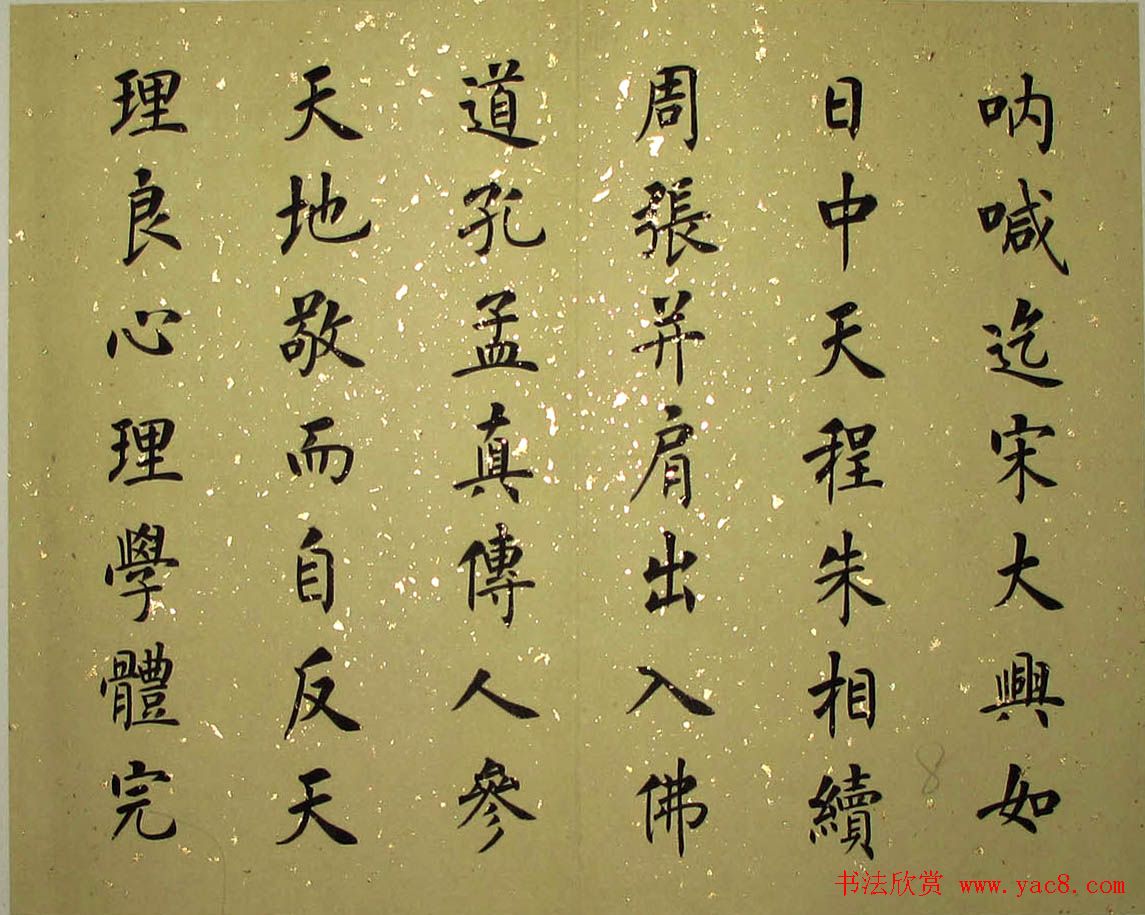 呐喊迄宋大興如
日中天程朱相續
周張并肩出入佛
道孔孟真傳人參
天地敬而自反天
理良心理學體完
8
书法欣赏 www.yac8.com